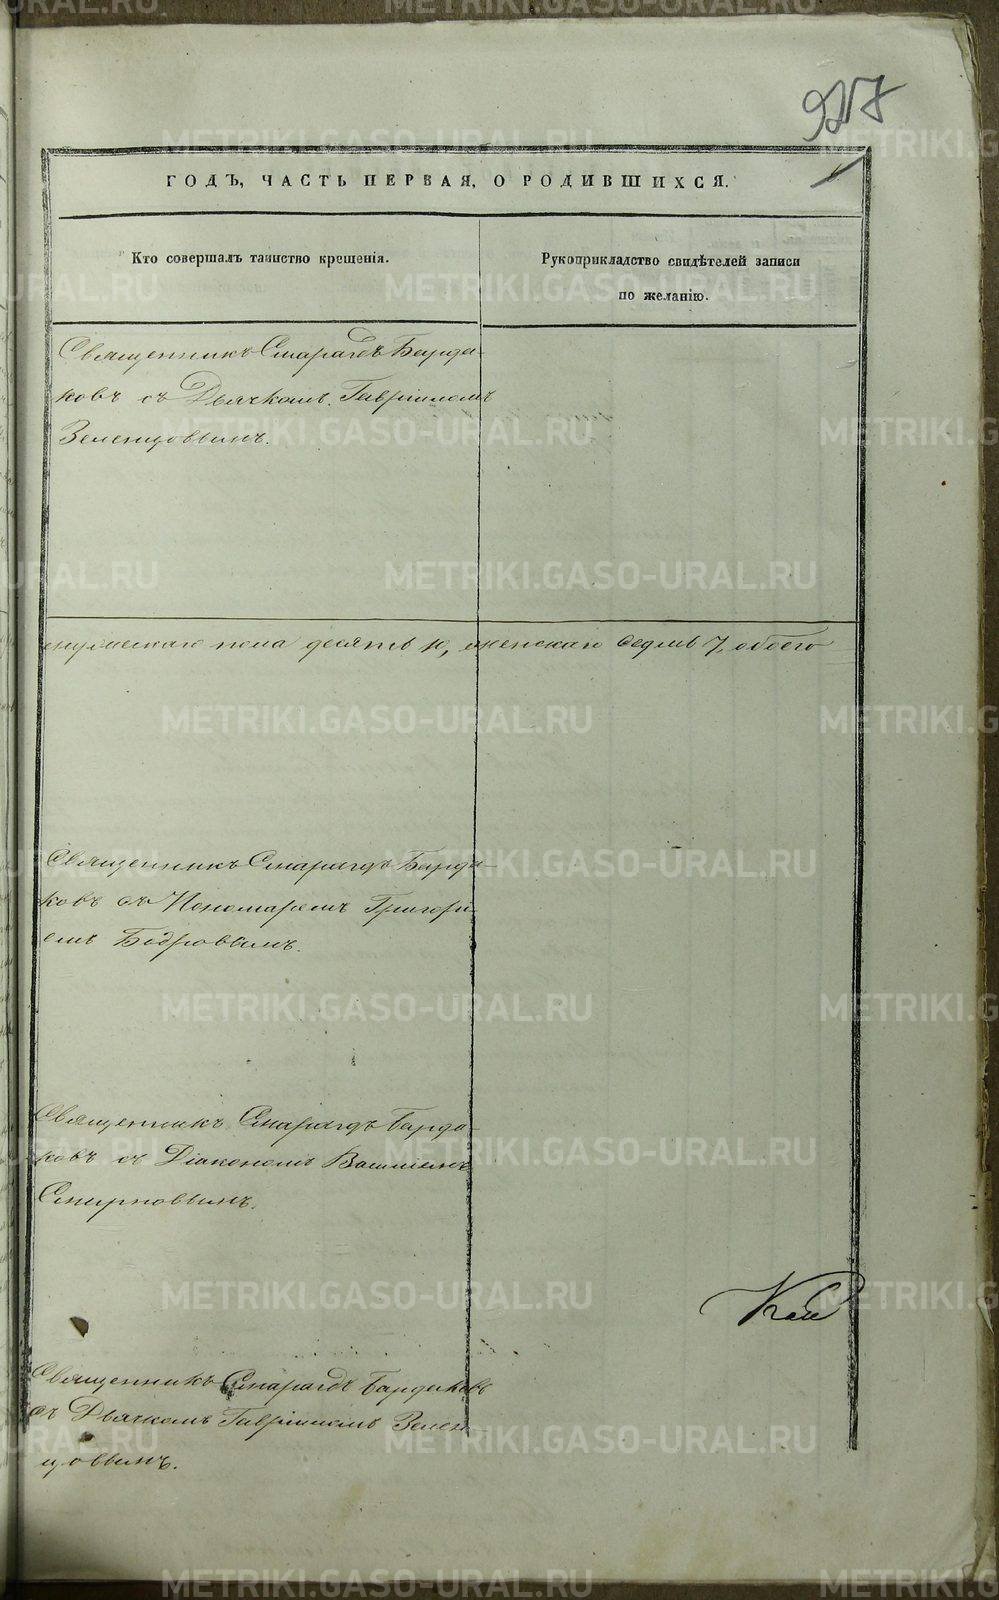 927
ГОДЪ, ЧАСТЬ ПЕРВАЯ, О РОДИВШИХСЯ.
Кто совершалъ таинство крещенія.
Рукоприкладство свидѣтелей записи
по желанію.
Священникъ Смарагдъ Барда-
ковъ съ Дьячкомъ Гавріиломъ
Зеленцовымъ.
мужескаго пола десять 10, женскаго седмь 7, обоего
Священникъ Смарагдъ Барда-
ковъ съ Пономаремъ Григорі-
емъ Бодровымъ.
Священникъ Смарагдъ Барда-
ковъ съ Діакономъ Василіемъ
Смирновымъ.
Священникъ Смарагдъ Бардаковъ
съ Дьячкомъ Гавріиломъ Зелен-
цовымъ.
METRIKI.GASO-URAL.RU